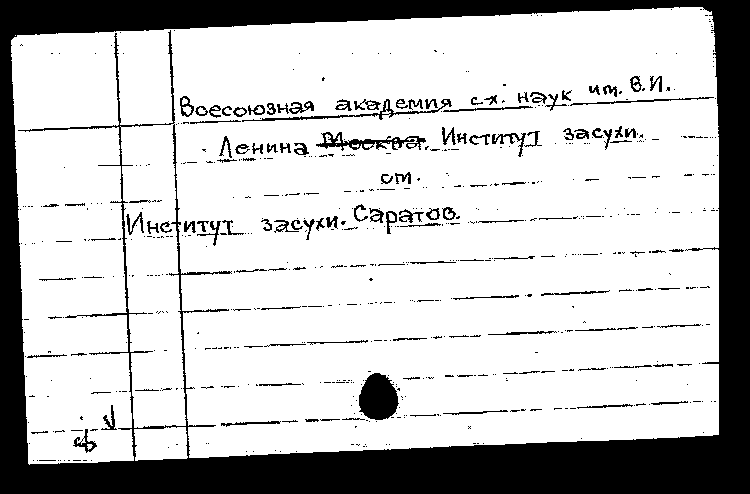 Всесоюзная академия с-х. наук им. В.И.
Ленина Москва. Институт засухи.
см.
Институт засухи. Саратов.